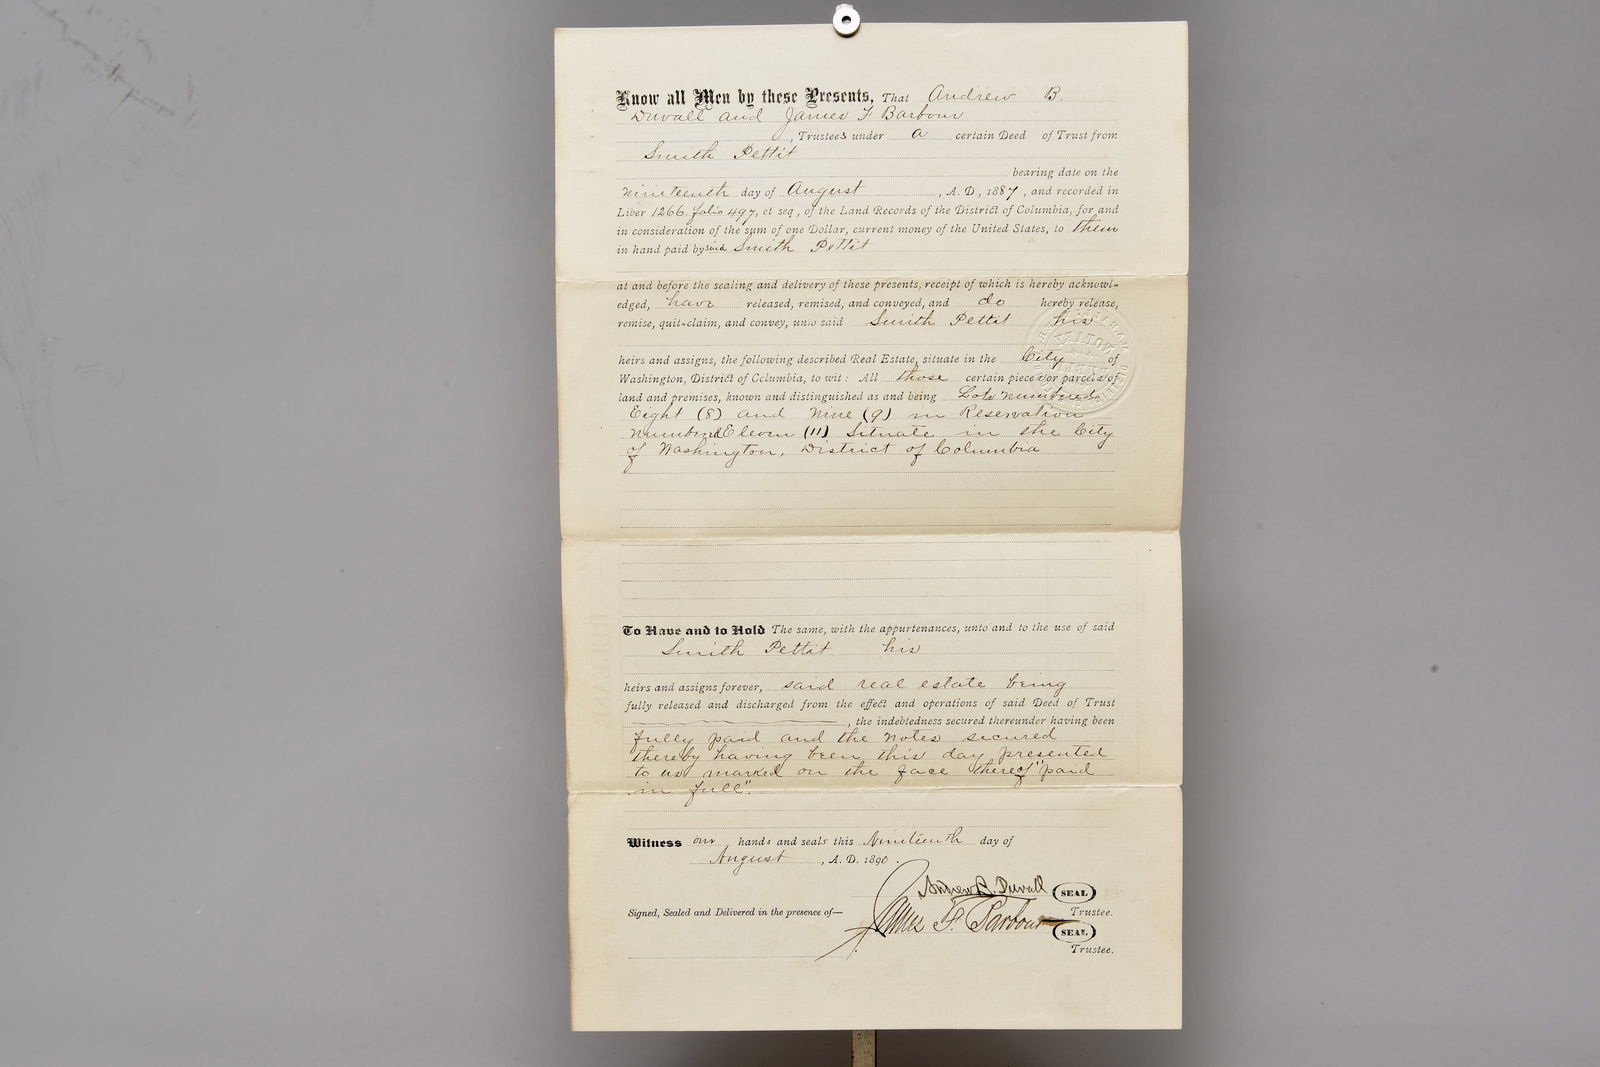 Know all Men by these Presents, That Andrew B.
Duvall and James F Barbour
, Trustees under a certain Deed of Trust from
Smith Pettit
bearing date on the
nineteenth day of August , A. D., 1887 , and recorded in
Liber 1266. folio 497, et seq , of the Land Records of the District of Columbia, for and
in consideration of the sum of one Dollar, current money of the United States, to them
in hand paid by said Smith Pettit
at and before the sealing and delivery of these presents, receipt of which is hereby acknowl-
edged, have released, remised, and conveyed, and do hereby release,
remise, quit-claim, and convey, unto said Smith Pettit his
heirs and assigns, the following described Real Estate, situate in the City of
Washington, District of Columbia, to wit: All those certain pieces or parcels of
land and premises, known and distinguished as and being Lots numbered
Eight (8) and Nine (9) in Reservation
numbered Eleven (11) Situate in the City
of Washington, District of Columbia
To Have and to Hold The same, with the appurtenances, unto and to the use of said
Smith Pettit his
heirs and assigns forever, said real estate being
fully released and discharged from the effect and operations of said Deed of Trust
, the indebtedness secured thereunder having been
fully paid and the notes secured
thereby having been this day presented
to us marked on the face thereof "paid
in full".
Witness our hands and seals this Nineteenth day of
August , A. D. 1890 .
Andrew B. Duvall SEAL
Signed, Sealed and Delivered in the presence of— Trustee.
James F. Barbour SEAL
Trustee.